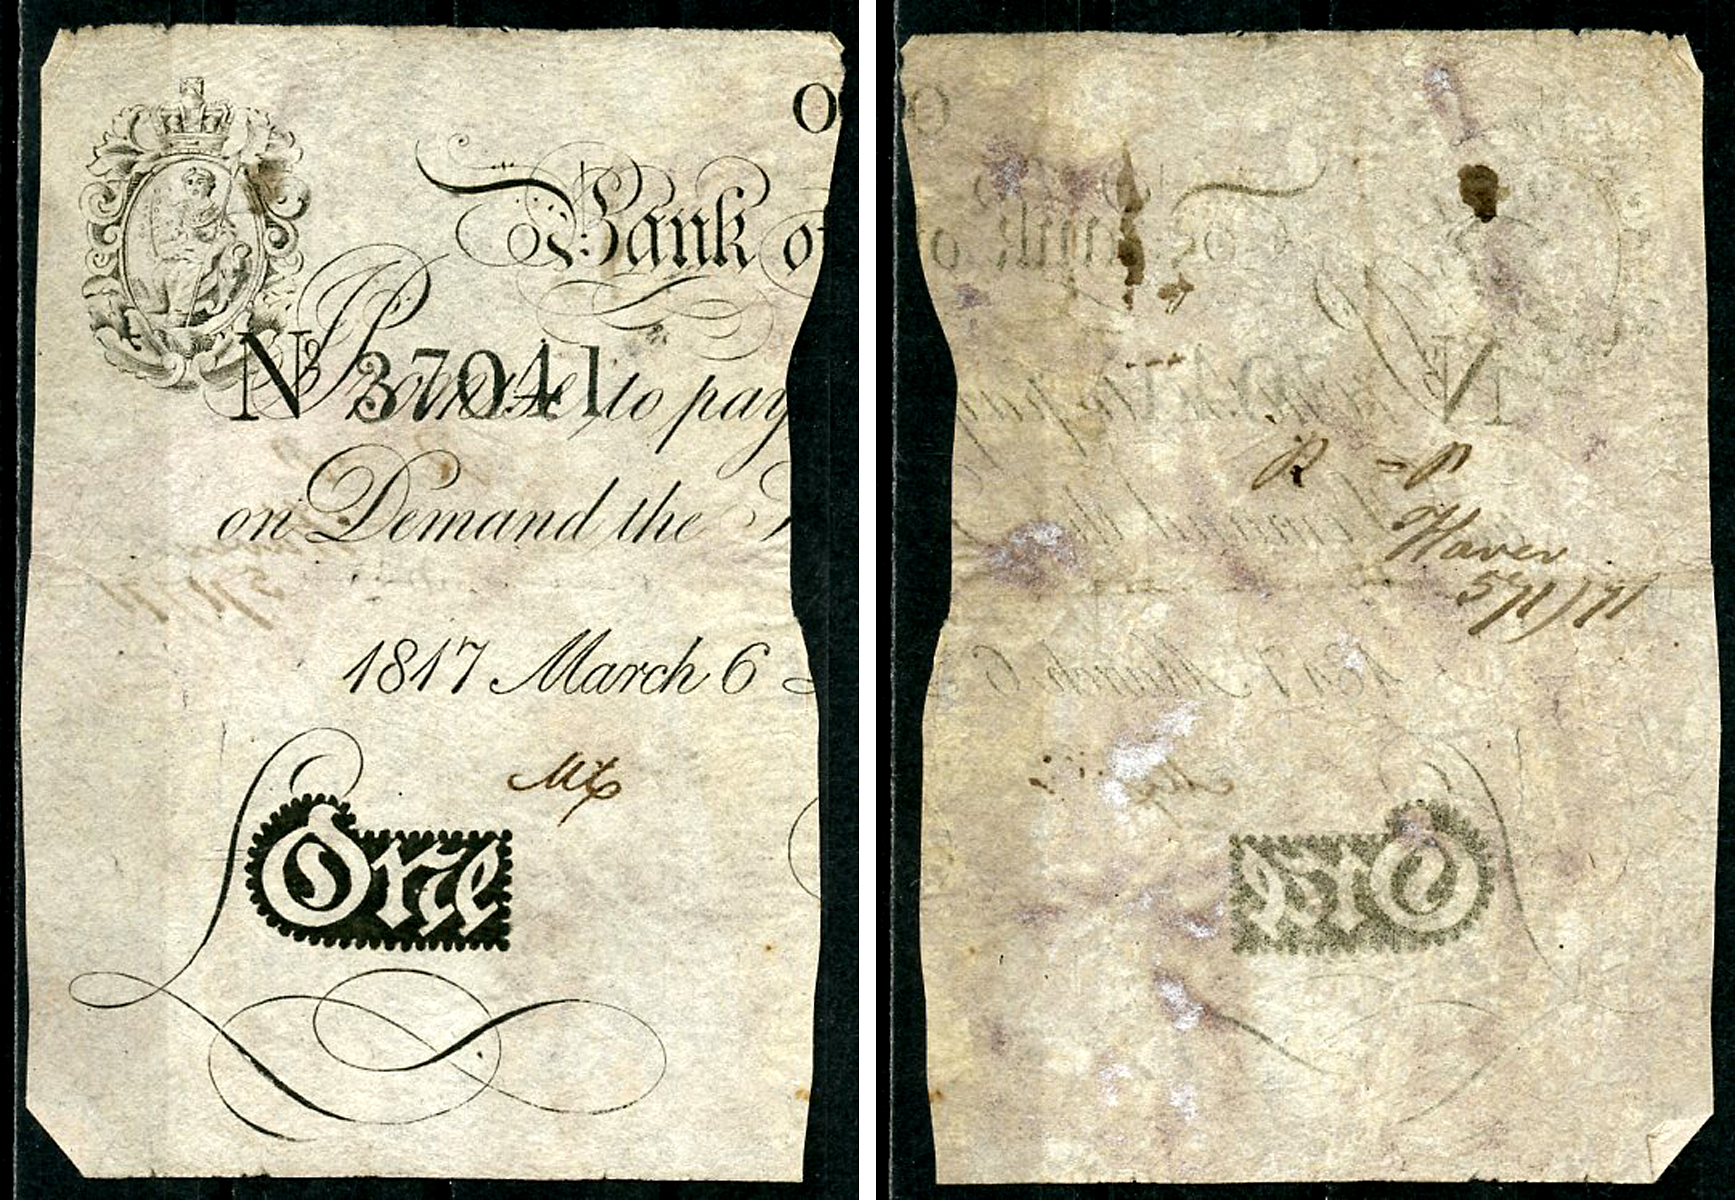 Bank of
No 37041
Promise to pay
on Demand the
1817 March 6
One
Haver